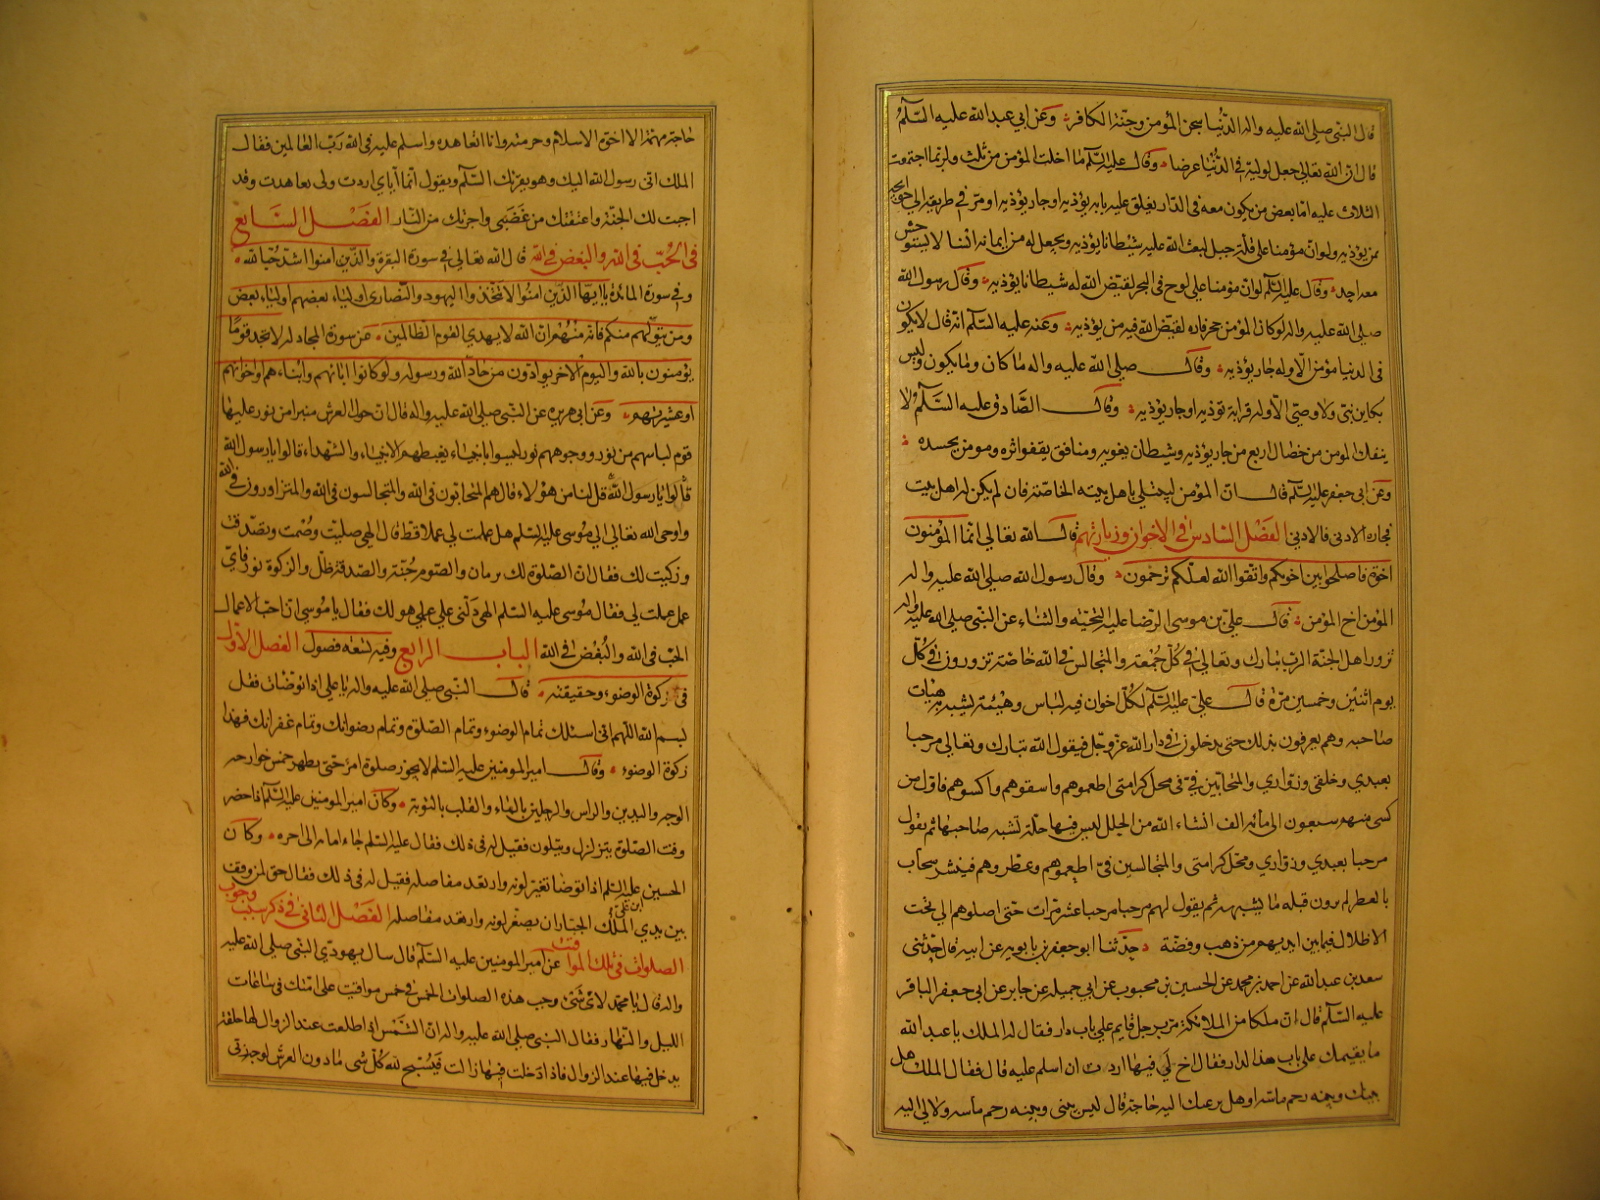 قال النبی صلی الله علیه واله الدنیا سجن المؤمن وجنة الکافر وعن ابی عبد الله علیه السلم
قال ان الله تعالی جعل لولیه فی الدنیا عرضا وقال علیه السلم ما اخلت المؤمن من ثلث ولربما اجتمعت
الثلاث علیه اما بعض من یکون معه فی الدار یغلق علیه بابه یؤذیه او جار یؤذیه او من فی طریقه الی حوایجه
من یؤذیه ولو ان مؤمنا علی قلة جبل لبعث الله علیه شیطانا یؤذیه ویجعل له من ایمانه انسا لا یستوحش
معه احد وقال علیه السلم لو ان مؤمنا علی لوح فی البحر لقیض الله له شیطانا یؤذیه وقال رسول الله
صلی الله علیه واله لو کان المؤمن حجر فاره لقیض الله فیه من یؤذیه وعنه علیه السلم انه قال لا یکون
فی الدنیا مؤمن الا وله جار یؤذیه وقال صلی الله علیه واله ما کان وما یکون ولیس
بکاین نبی ولا وصی الا وله قرابة تؤذیه او جار یؤذیه وقال الصادق علیه السلم لا
ینفک المؤمن من خصال اربع من جار یؤذیه وشیطان یغویه ومنافق یقفو اثره ومومن یحسده
وعن ابی جعفر علیه السلم قال ان المؤمن لیبتلی باهل بیته الخاصة فان لم یکن له اهل بیت
فجاره الادنی فالادنی الفصل السادس فی الاخوان وزیارتهم قال الله تعالی انما المؤمنون
اخوة فاصلحوا بین اخویکم واتقوا الله لعلکم ترحمون وقال رسول الله صلی الله علیه واله
المؤمن اخ المؤمن قال علی بن موسی الرضا علیه التحیة والثناء عن النبی صلی الله علیه واله
تزور اهل الجنة الرب تبارک وتعالی فی کل جمعة والمتجالس فی الله خاصة تزورون فی کل
یوم اثنین وخمسین مرة قال علی علیه السلم لکل اخوان فیه لباس وهیئة یشبه هیئات
صاحبه وهم یعرفون بذلک حتی یدخلون فی دار الله عز وجل فیقول الله تبارک وتعالی مرحبا
بعبدی وخلقی وزواری والمتحابین فی فی محل کرامتی اطعموهم واسقوهم واکسوهم فاول من
کسی منهم سبعون الی مائة الف انشاء الله من الحلل لیس فیها حلة تشبه صاحبها ثم یقول
مرحبا بعبدی وزواری ومحل کرامتی والمتجالسین فی اطعموهم وعطروهم فینشر سحاب
بالعطر لم یرون قبله ما یشبهه ثم یقول لهم مرحبا مرحبا عشر مرات حتی اصلوهم الی تحت
الاظلال فیما بین ایدیهم من ذهب وفضة حدثنا ابو جعفر بن بابویه عن ابیه قال حدثنی
سعد بن عبد الله عن احمد بن محمد عن الحسین بن محبوب عن ابی جمیلة عن جابر عن ابی جعفر الباقر
علیه السلم قال ان ملکا من الملائکة مر برجل قایم علی باب دار فقال له الملک یا عبد الله
ما یقیمک علی باب هذا الدار فقال اخ لی فیها اردت ان اسلم علیه قال فقال الملک هل
بینک وبینه رحم ماسة او هل نزعتک الیه حاجة قال لیس بینی وبینه رحم ماسه ولا لی الیه
حاجة الا اخوة الاسلام وحرمته وانا اتعاهده واسلم علیه فی الله رب العالمین فقال
الملک انی رسول الله الیک وهو یقرئک السلم ویقول انما ایای اردت ولی تعاهدت وقد
اجبت لک الجنة واعتقتک من غضبی واجرتک من النار الفصل السابع
فی الحب فی الله والبغض فی الله قال الله تعالی فی سورة البقرة والذین امنوا اشد حبا لله
وفی سورة المائدة یا ایها الذین امنوا لا تتخذوا الیهود والنصاری اولیاء بعضهم اولیاء بعض
ومن یتولهم منکم فانه منهم ان الله لا یهدی القوم الظالمین عن سورة المجادله لا تجد قوما
یؤمنون بالله والیوم الاخر یوادون من حاد الله ورسوله ولو کانوا اباءهم وابناءهم او اخوانهم
او عشیرتهم وعن ابی هریره عن النبی صلی الله علیه واله قال ان حول العرش منبرا من نور علیها
قوم لباسهم من نور ووجوههم نور لیسوا بانبیاء یغبطهم الانبیاء والشهداء قالوا یا رسول الله
قالوا یا رسول الله قل لنا من هؤلاء قال هم المتحابون فی الله والمتجالسون فی الله والمتزاورون فی الله
واوحی الله تعالی الی موسی علیه السلم هل عملت لی عملا قط قال الهی صلیت وصمت وتصدقت
وزکیت لک فقال ان الصلوة لک برهان والصوم جنة والصدقة ظل والزکوة نور فای
عمل عملت لی فقال موسی علیه السلم الهی دلنی علی عمل هو لک فقال یا موسی ان احب الاعمال
الحب فی الله والبغض فی الله الباب الرابع وفیه تسعه فصول الفصل الاول
فی زکوة الوضوء وحقیقته قال النبی صلی الله علیه واله یا علی اذا توضات فقل
بسم الله اللهم انی اسئلک تمام الوضوء وتمام الصلوة وتمام رضوانک وتمام غفرانک فهذا
زکوة الوضوء وقال امیر المومنین علیه السلم لا یجوز صلوة امرء حتی یطهر خمس جوارحه
الوجه والیدین والراس والرجلین بالماء والقلب بالتوبة وکان امیر المومنین علیه السلم اذا حضر
وقت الصلوة یتزلزل ویتلون فقیل له فی ذلک فقال علیه السلم جاء امانه الی اخره وکان
الحسین علیه السلم اذا توضا تغیر لونه وارتعد مفاصله فقیل له فی ذلک فقال حق لمن وقف
بین یدی الملک الجبار ان یصفر لونه وارتعد مفاصله الفصل الثانی فی ذکر سبب وجوب
الصلوات فی تلک المواقیت عن امیر المومنین علیه السلم قال سال یهودی النبی صلی الله علیه
واله قال یا محمد لای شیئ وجب هذه الصلوات الخمس فی خمس مواقیت علی امتک فی ساعات
اللیل والنهار فقال النبی صلی الله علیه واله ان الشمس اذا طلعت عند الزوال لها حلقة
یدخل فیها عند الزوال فاذا ادخلت فیها زالت فیسبح لله کل شی ما دون العرش لوجه ربی